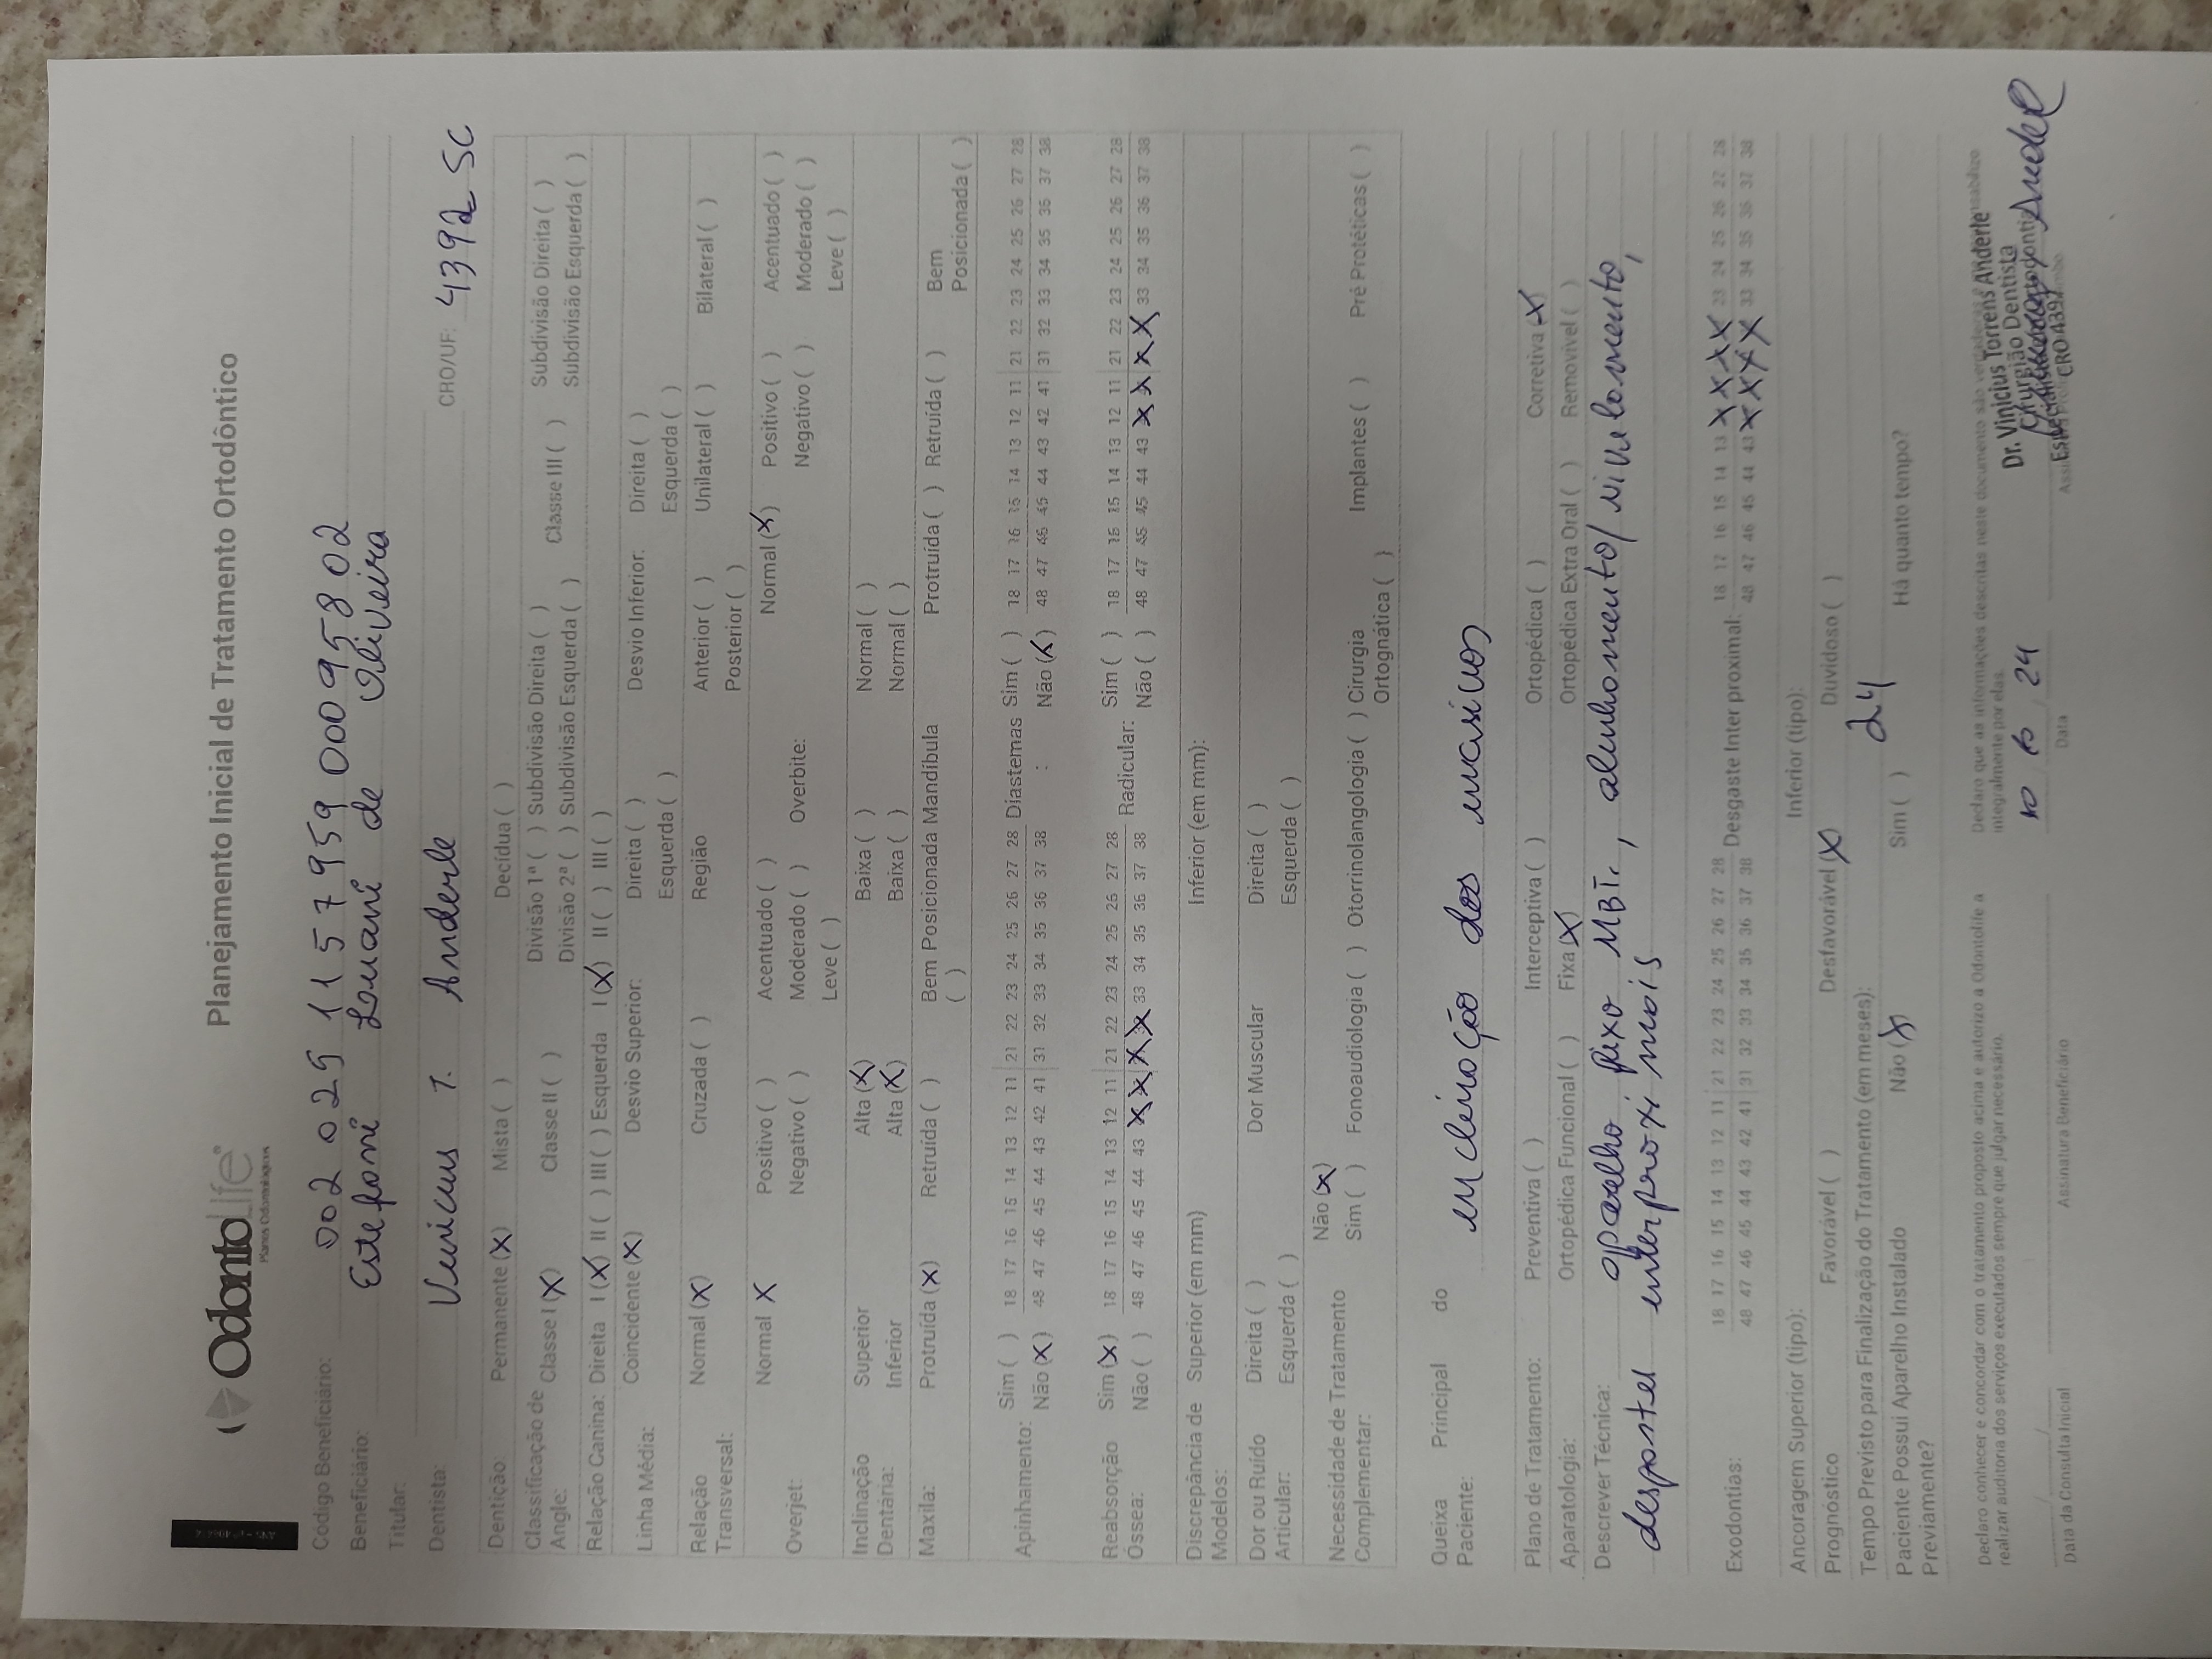 OdontoLife®
Planos Odontológicos
Planejamento Inicial de Tratamento Ortodôntico
Código Beneficiário: 002 025 115 7959 000 958 02
Beneficiário: Estefani Louani de Oliveira
Titular:
Dentista: Vinicius T. Anderle CRO/UF: 4392 SC
Dentição: Permanente (X) Mista ( ) Decídua ( )
Classificação de Angle: Classe I (X) Classe II ( ) Divisão 1ª ( ) Subdivisão Direita ( ) Classe III ( ) Subdivisão Direita ( )
Divisão 2ª ( ) Subdivisão Esquerda ( ) Subdivisão Esquerda ( )
Relação Canina: Direita I (X) II ( ) III ( ) Esquerda I (X) II ( ) III ( )
Linha Média: Coincidente (X) Desvio Superior: Direita ( ) Desvio Inferior: Direita ( )
Esquerda ( ) Esquerda ( )
Relação Transversal: Normal (X) Cruzada ( ) Região Anterior ( ) Unilateral ( ) Bilateral ( )
Posterior ( )
Overjet: Normal X Positivo ( ) Acentuado ( ) Overbite: Normal (X) Positivo ( ) Acentuado ( )
Negativo ( ) Moderado ( ) Negativo ( ) Moderado ( )
Leve ( ) Leve ( )
Inclinação Dentária: Superior Alta (X) Baixa ( ) Normal ( )
Inferior Alta (X) Baixa ( ) Normal ( )
Maxila: Protruída (X) Retruída ( ) Bem Posicionada ( ) Mandíbula Protruída ( ) Retruída ( ) Bem Posicionada ( )
Apinhamento: Sim ( ) 18 17 16 15 14 13 12 11 21 22 23 24 25 26 27 28 Diastemas : Sim ( ) 18 17 16 15 14 13 12 11 21 22 23 24 25 26 27 28
Não (X) 48 47 46 45 44 43 42 41 31 32 33 34 35 36 37 38 Não (X) 48 47 46 45 44 43 42 41 31 32 33 34 35 35 37 38
Reabsorção Óssea: Sim (X) 18 17 16 15 14 13 12 11 21 22 23 24 25 26 27 28 Radicular: Sim ( ) 18 17 16 15 14 13 12 11 21 22 23 24 25 26 27 28
Não ( ) 48 47 46 45 44 43 X X X X 33 34 35 36 37 38 Não ( ) 48 47 46 45 44 43 X X X X 33 34 35 36 37 38
Discrepância de Modelos: Superior (em mm) Inferior (em mm):
Dor ou Ruído Articular: Direita ( ) Dor Muscular Direita ( )
Esquerda ( ) Esquerda ( )
Necessidade de Tratamento Complementar: Não (X)
Sim ( ) Fonoaudiologia ( ) Otorrinolangologia ( ) Cirurgia Ortognática ( ) Implantes ( ) Pré Protéticas ( )
Queixa Principal do Paciente: inclinação dos incisivos
Plano de Tratamento: Preventiva ( ) Interceptiva ( ) Ortopédica ( ) Corretiva X
Aparatologia: Ortopédica Funcional ( ) Fixa (X) Ortopédica Extra Oral ( ) Removível ( )
Descrever Técnica: aparelho fixo MBT, alinhamento/nivelamento,
desgastes interproximais
Exodontias: 18 17 16 15 14 13 12 11 21 22 23 24 25 26 27 28 Desgaste Inter proximal: 18 17 16 15 14 13 X X X X 23 24 25 26 27 28
48 47 46 45 44 43 42 41 31 32 33 34 35 36 37 38 48 47 46 45 44 43 X X X X 33 34 35 36 37 38
Ancoragem Superior (tipo): Inferior (tipo):
Prognóstico Favorável ( ) Desfavorável (X Duvidoso ( )
Tempo Previsto para Finalização do Tratamento (em meses): 24
Paciente Possui Aparelho Instalado Previamente? Não (X Sim ( ) Há quanto tempo?
Declaro conhecer e concordar com o tratamento proposto acima e autorizo a Odontolife a
realizar auditoria dos serviços executados sempre que julgar necessário.
Declaro que as informações descritas neste documento são
integralmente por elas.
10 10 24
Dr. Vinicius Torrens Anderle
Cirurgião Dentista
CRO 4392
Data da Consulta Inicial Assinatura Beneficiário Data